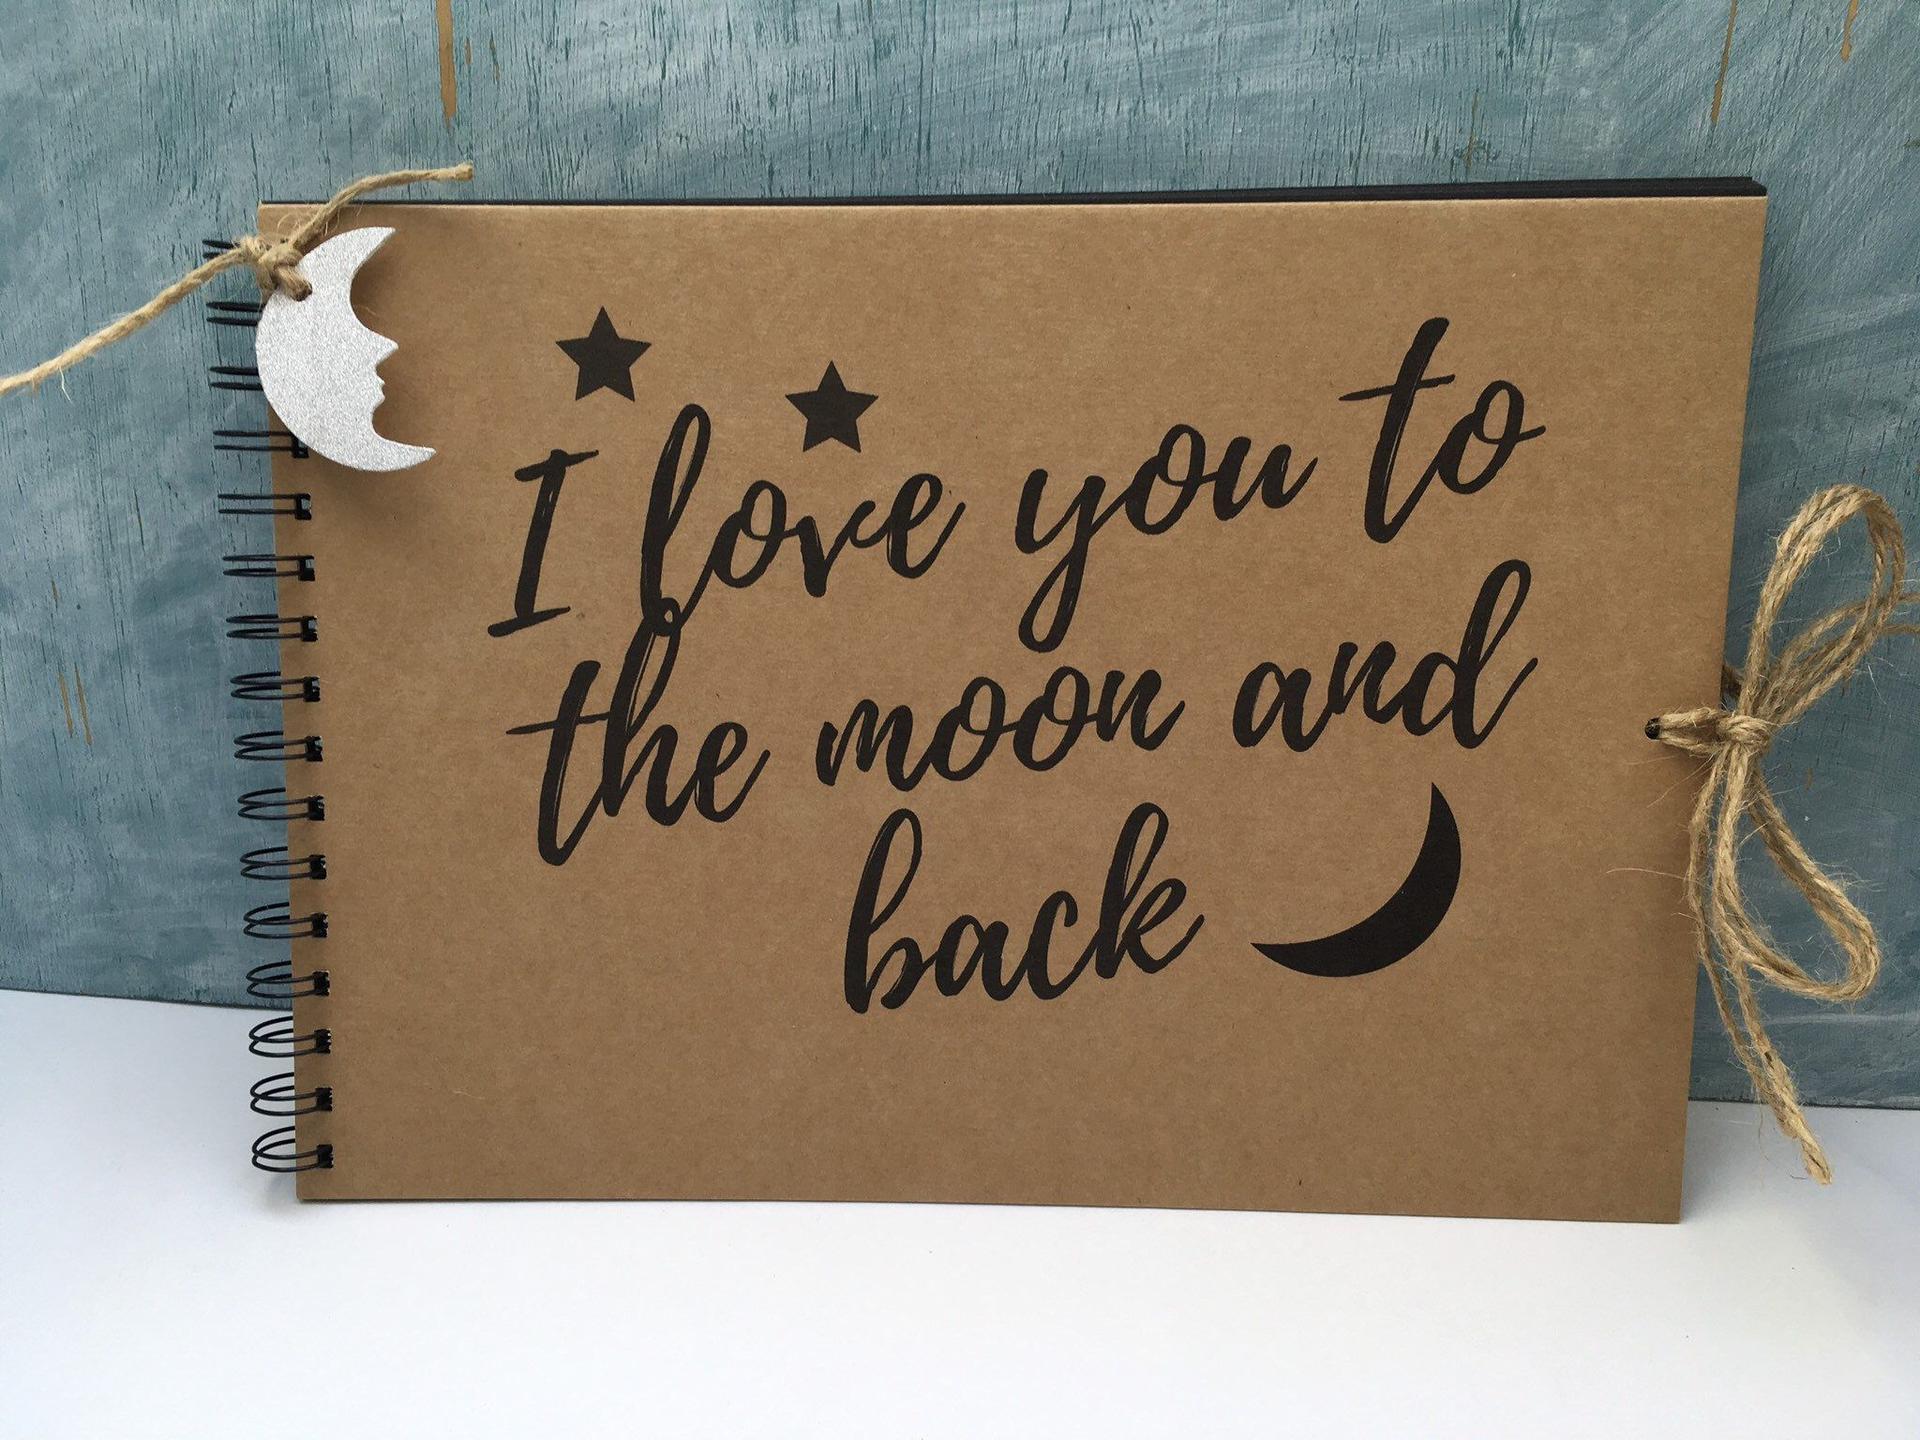 I love you to
the moon and
back